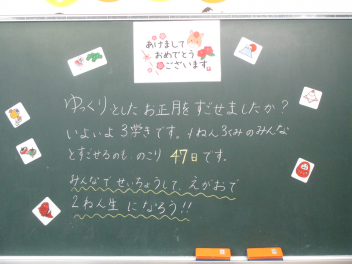 あけまして
おめでとう
ございます
ゆっくりとした お正月をすごせましたか？
いよいよ 3学きです。1ねん3くみのみんな
とすごせるのも のこり 47日です。
みんなで せいちょうして、えがおで
2ねん生 になろう!!